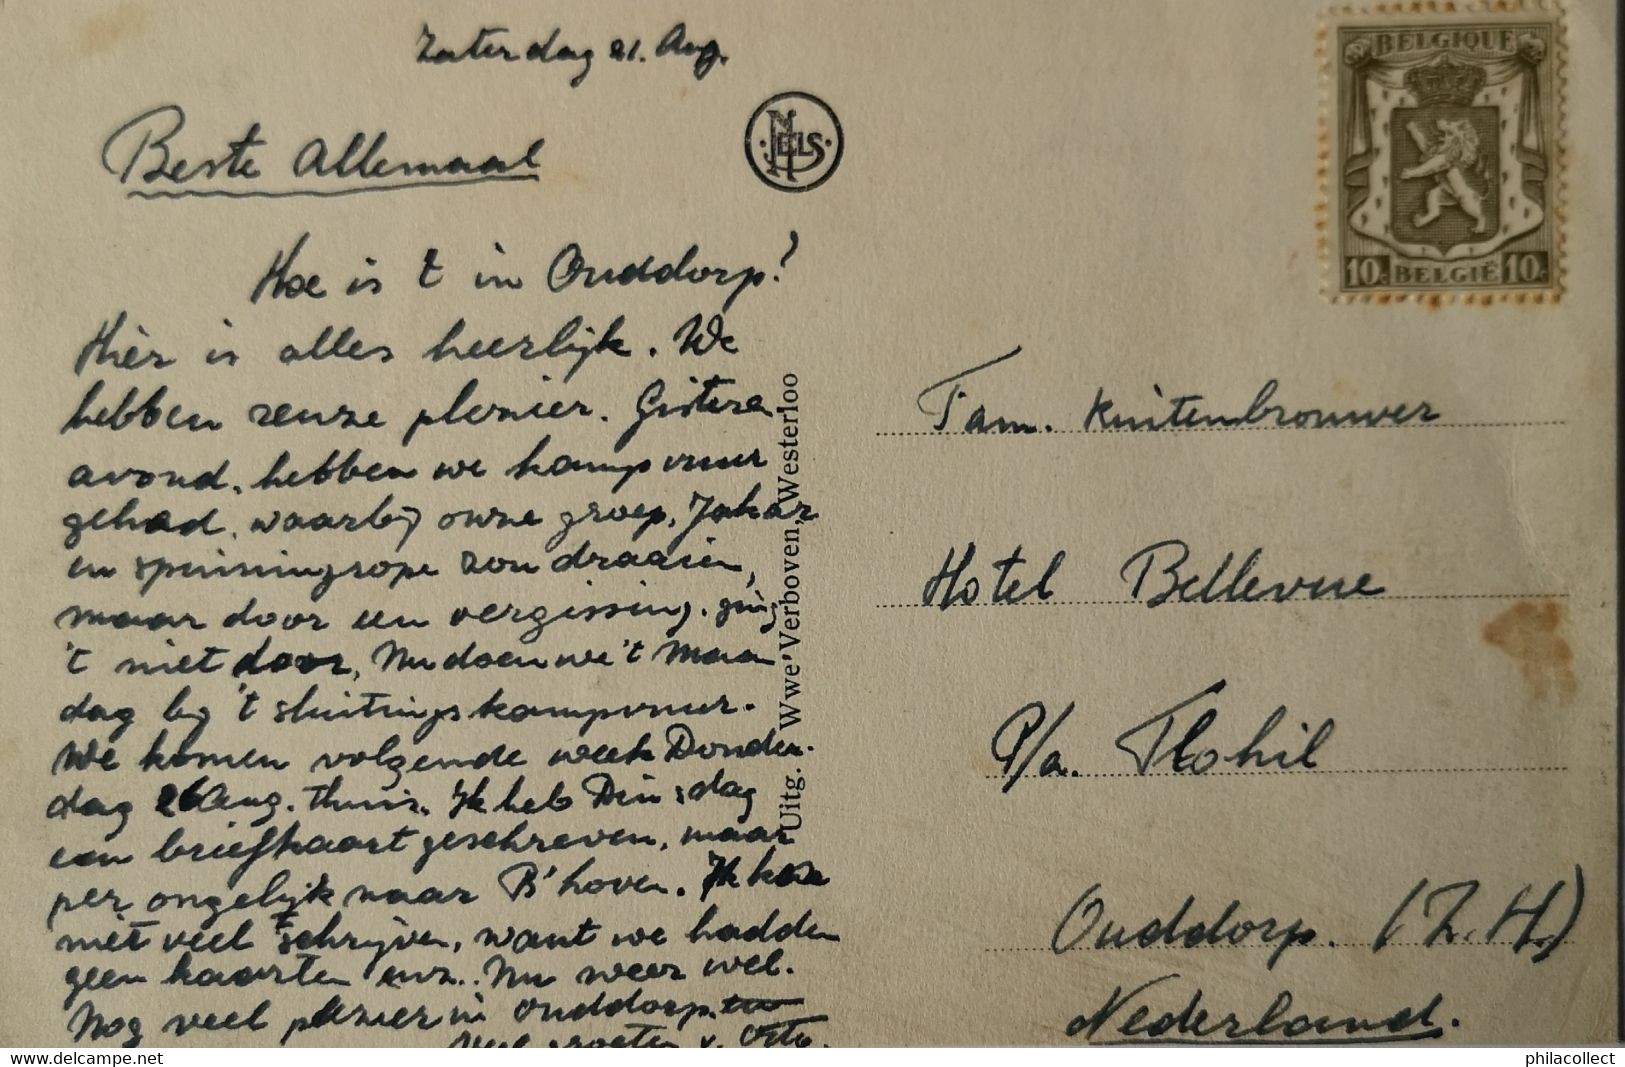 Zaterdag 21. Aug.
Beste Allemaal
NELS
Hoe is 't in Ouddorp?
Hier is alles heerlijk. We
hebben reuze plezier. Gisteren
avond. hebben we kampvuur
gehad, waarbij onze groep,
en spinningrope zou draaien,
maar door een vergissing. ging
't niet door, Nu doen we 't Maan
dag bij 't sluitingskampvuur.
We komen volgende week Donder-
dag 26 Aug. thuis. Ik heb Dinsdag
een briefkaart geschreven, maar
per ongelijk naar B'hoven. Ik kon
niet veel schrijven, want we hadden
geen kaarten enz.. Nu weer wel.
Nog veel plezier in Ouddorp.
Veel groeten v. Otto.
Uitg. Wwe Verboven, Westerloo
BELGIQUE
10c BELGIË 10c
Fam. Kuitenbrouwer
Hotel Bellevue
P/a. Flohil
Ouddorp. (Z.H.)
Nederland.
philacollect